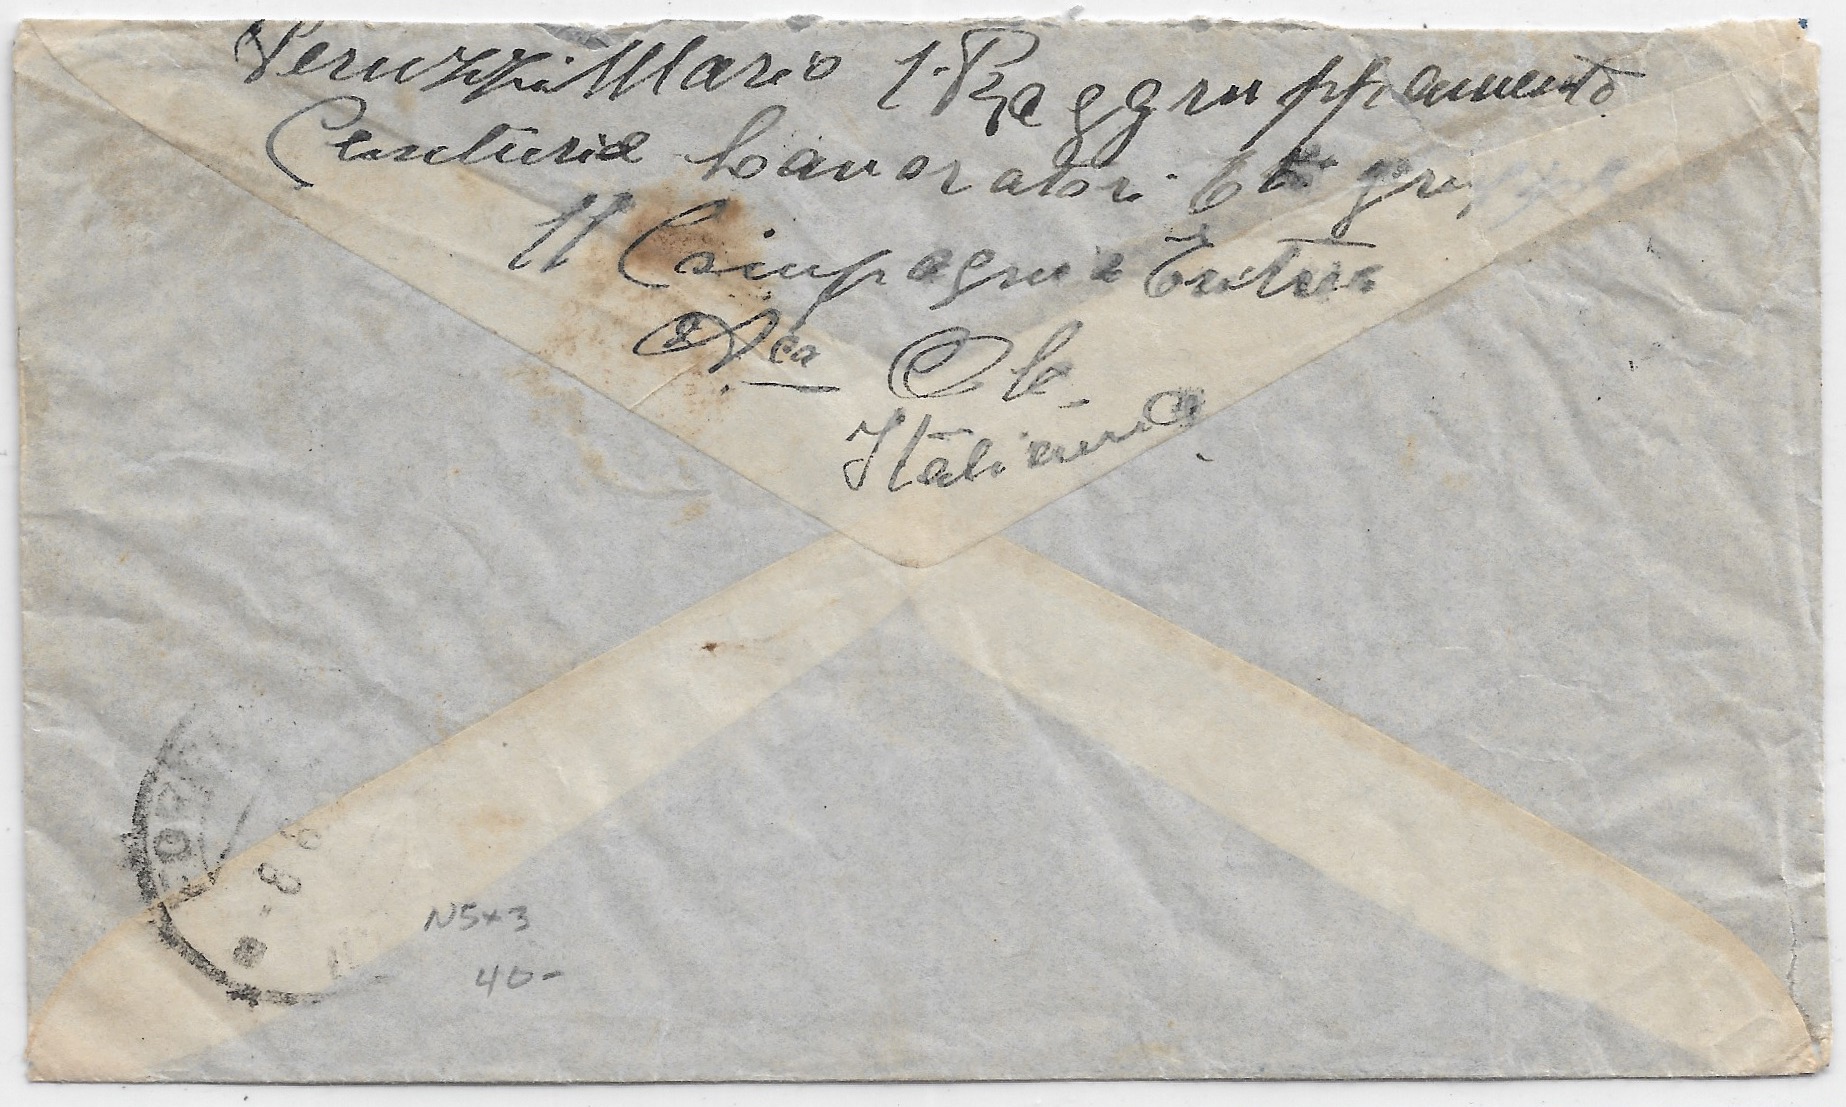 Peruzzi Mario 1. Raggruppamento
Centuria Lavoratori 6to gru
11 Compagnia Eritrea
Aca Ole
Italiana
N5x3
40-